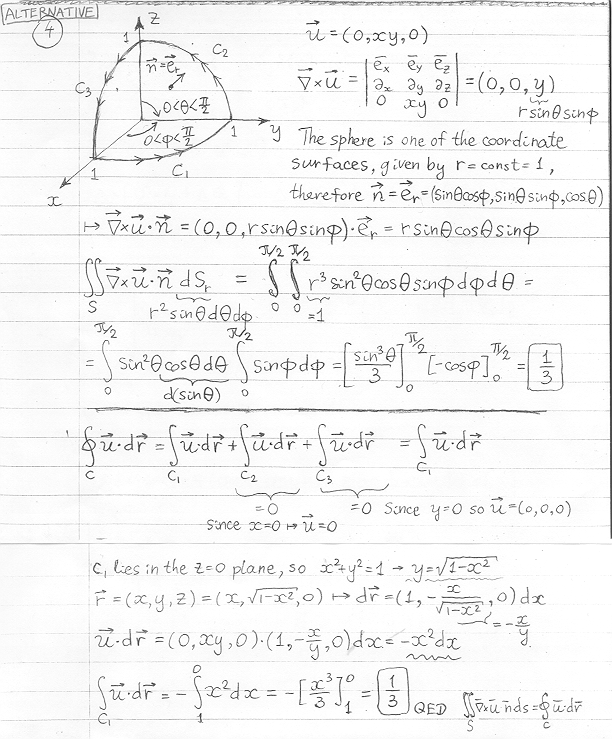 ALTERNATIVE
4
z
1
C₂
C₃
n⃗=e⃗r
0<θ<π/2
0<φ<π/2
1
y
1
C₁
x
u⃗ = (0,xy,0)
∇⃗×u⃗ = | e⃗x e⃗y e⃗z |
| ∂x ∂y ∂z | = (0,0,y)
| 0 xy 0 |
rsinθsinφ
The sphere is one of the coordinate
surfaces, given by r=const=1,
therefore n⃗=e⃗r=(sinθcosφ,sinθsinφ,cosθ)
↦ ∇⃗×u⃗·n⃗ = (0,0,rsinθsinφ)·e⃗r = rsinθcosθsinφ
∬S ∇⃗×u⃗·n⃗ dSr = ∫₀^π/2 ∫₀^π/2 r³sin²θcosθsinφdφdθ =
r²sinθdθdφ =1
= ∫₀^π/2 sin²θcosθdθ ∫₀^π/2 sinφdφ = [sin³θ/3]₀^π/2 [-cosφ]₀^π/2 = 1/3
d(sinθ)
∮C u⃗·dr⃗ = ∫C₁ u⃗·dr⃗ + ∫C₂ u⃗·dr⃗ + ∫C₃ u⃗·dr⃗ = ∫C₁ u⃗·dr⃗
=0 =0 Since y=0 so u⃗=(0,0,0)
Since x=0 ↦ u⃗=0
C₁ lies in the z=0 plane, so x²+y²=1 → y=√1-x²
r⃗ = (x,y,z) = (x,√1-x²,0) ↦ dr⃗ = (1,-x/√1-x²,0)dx
=-x/y
u⃗·dr⃗ = (0,xy,0)·(1,-x/y,0)dx = -x²dx
∫C₁ u⃗·dr⃗ = -∫₁⁰ x²dx = -[x³/3]₁⁰ = 1/3 QED ∬S ∇⃗×u⃗·n⃗ds=∮C u⃗·dr⃗